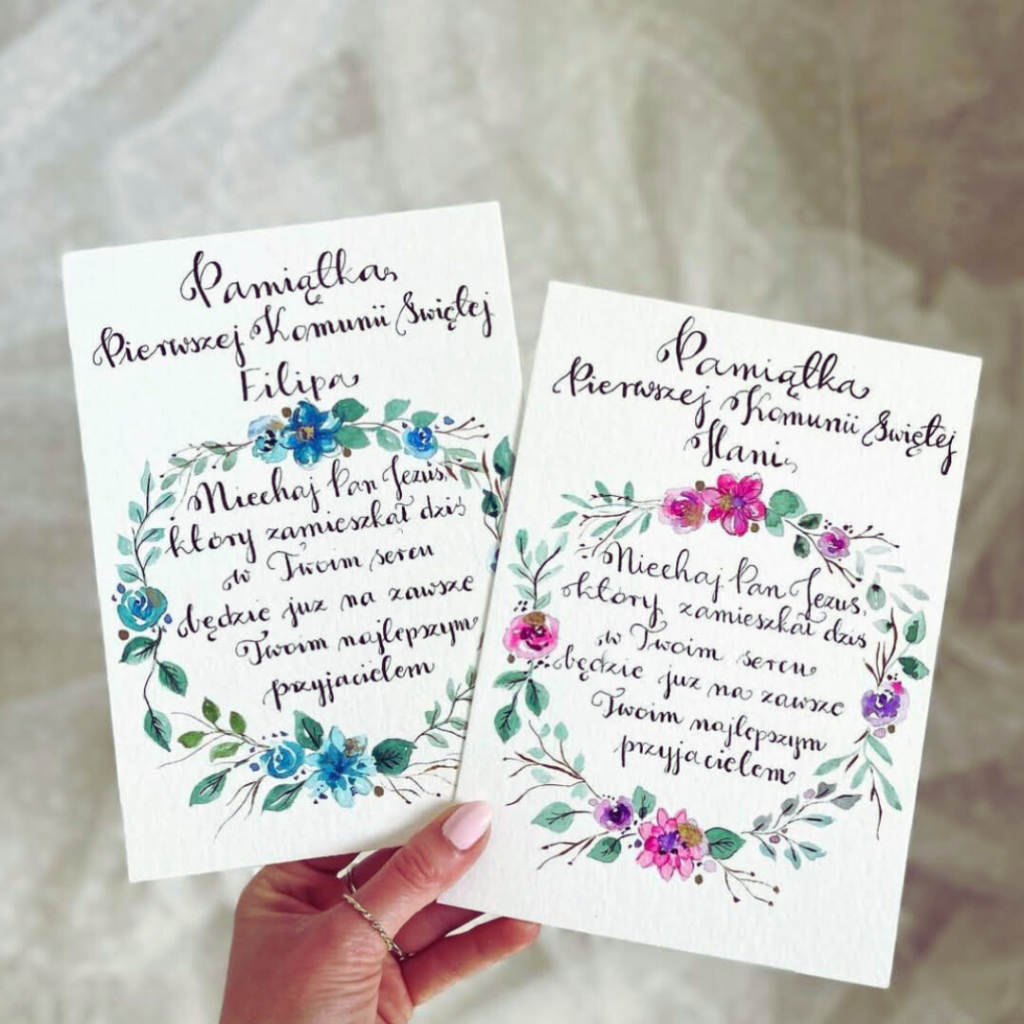 Pamiątka
Pierwszej Komunii Świętej
Filipa
Niechaj Pan Jezus,
który zamieszkał dziś
w Twoim sercu
będzie już na zawsze
Twoim najlepszym
przyjacielem
Pamiątka
Pierwszej Komunii Świętej
Hani
Niechaj Pan Jezus,
który zamieszkał dziś
w Twoim sercu
będzie już na zawsze
Twoim najlepszym
przyjacielem